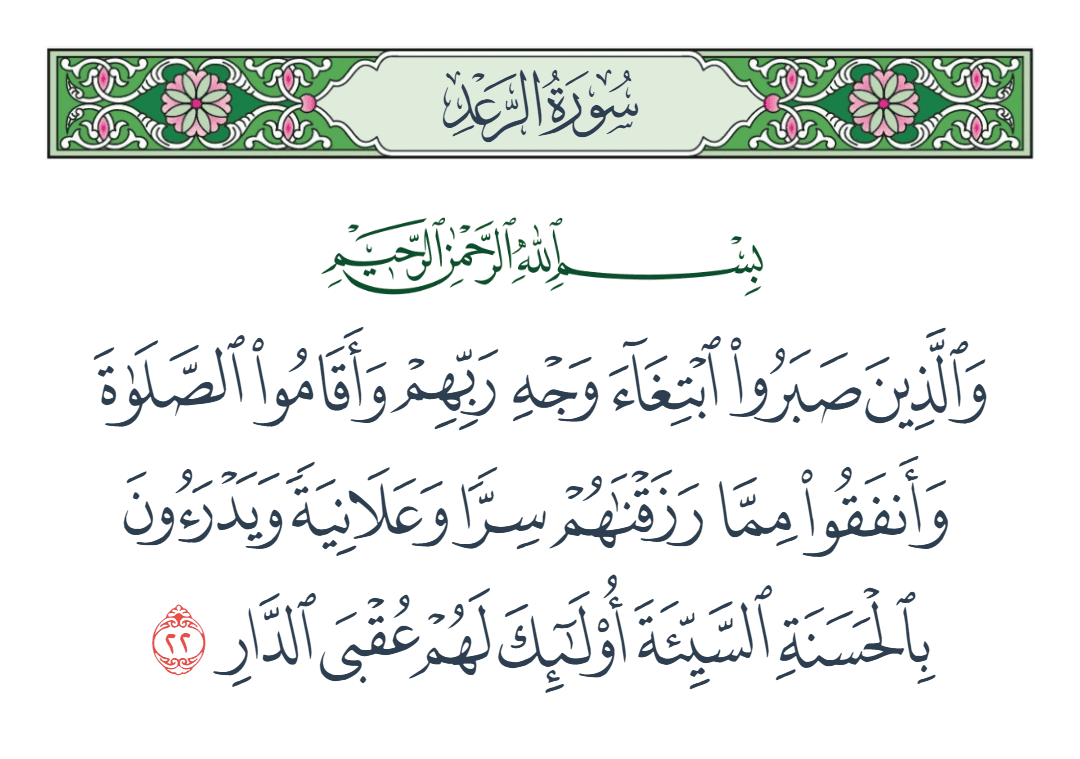 سُورَةُ الرَّعْدِ
بِسْمِ ٱللَّهِ ٱلرَّحْمَٰنِ ٱلرَّحِيمِ
وَٱلَّذِينَ صَبَرُوا۟ ٱبْتِغَآءَ وَجْهِ رَبِّهِمْ وَأَقَامُوا۟ ٱلصَّلَوٰةَ
وَأَنفَقُوا۟ مِمَّا رَزَقْنَٰهُمْ سِرًّا وَعَلَانِيَةً وَيَدْرَءُونَ
بِٱلْحَسَنَةِ ٱلسَّيِّئَةَ أُو۟لَٰٓئِكَ لَهُمْ عُقْبَى ٱلدَّارِ ٢٢